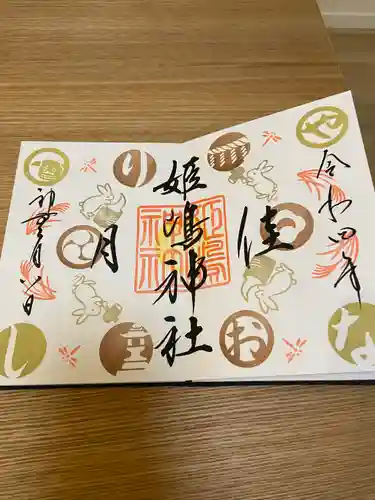 令和四年
佳
姫嶋神社
月
神無月八日
や
り
な
お
し
姫嶋
神社